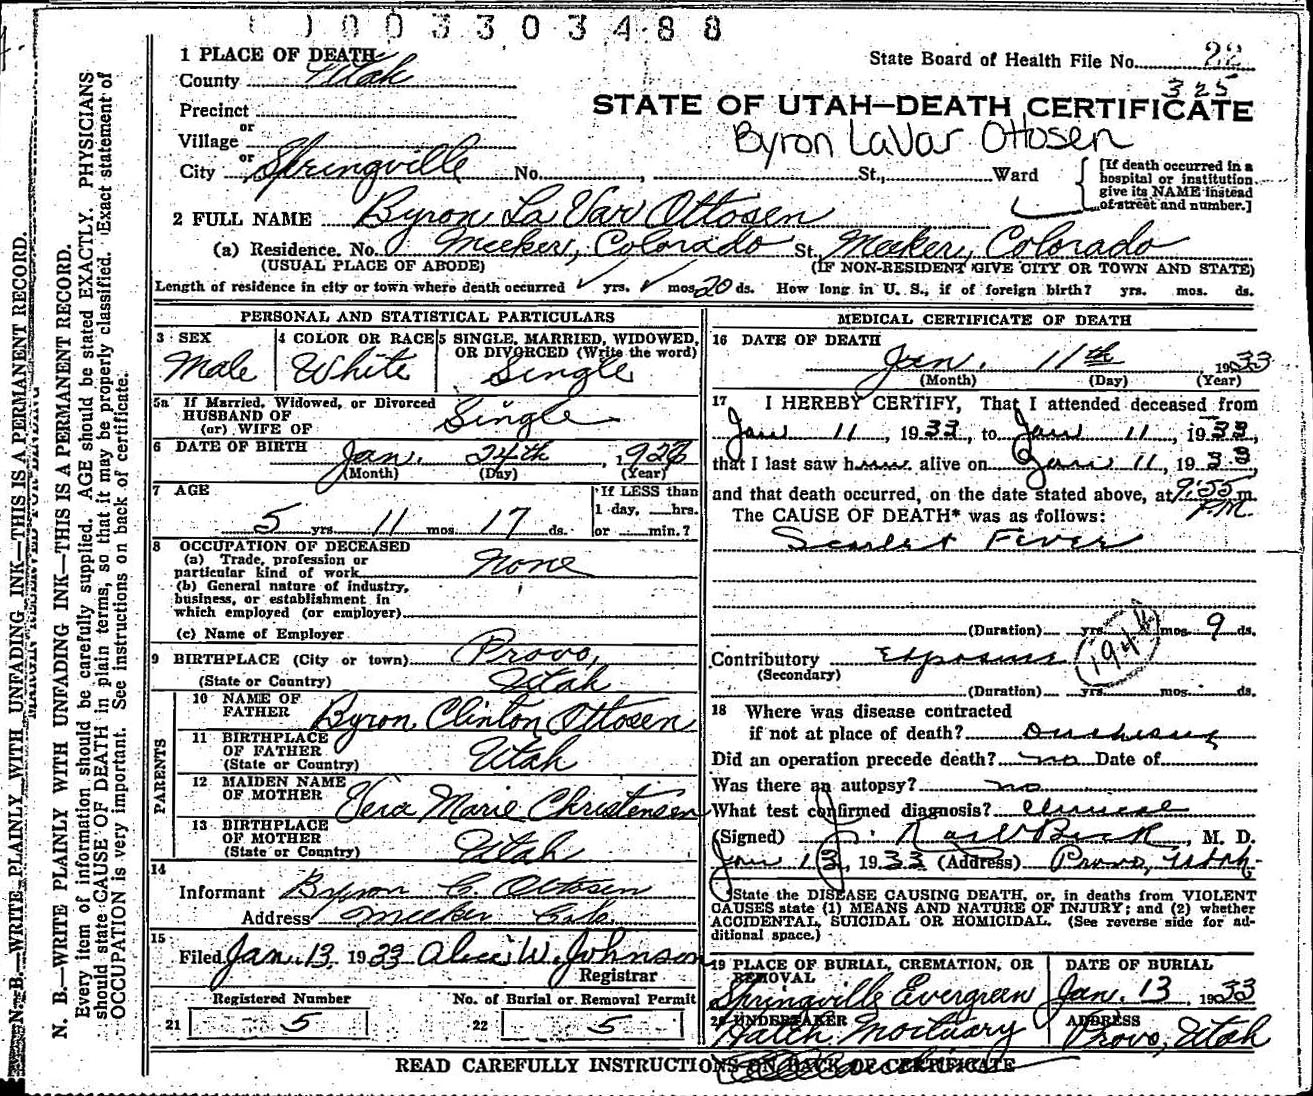 1003303488
1 PLACE OF DEATH
County Utah
State Board of Health File No. 22
325
Precinct
STATE OF UTAH—DEATH CERTIFICATE
or
Village
Byron LaVar Ottosen
or
City Springville No. , St., Ward
[If death occurred in a hospital or institution give its NAME instead of street and number.]
2 FULL NAME Byron La Var Ottosen
(a) Residence. No. Meeker, Colorado St. Meeker, Colorado
(USUAL PLACE OF ABODE) (IF NON-RESIDENT GIVE CITY OR TOWN AND STATE)
Length of residence in city or town where death occurred yrs. mos. 20 ds. How long in U. S., if of foreign birth? yrs. mos. ds.
PERSONAL AND STATISTICAL PARTICULARS
3 SEX
Male
4 COLOR OR RACE
White
5 SINGLE, MARRIED, WIDOWED,
OR DIVORCED (Write the word)
Single
5a If Married, Widowed, or Divorced
HUSBAND OF
(or) WIFE OF
Single
6 DATE OF BIRTH
Jan. 24th , 192
(Month) (Day) (Year)
7 AGE
5 yrs. 11 mos. 17 ds.
If LESS than
1 day, hrs.
or min.?
8 OCCUPATION OF DECEASED
(a) Trade, profession or
particular kind of work None
(b) General nature of industry,
business, or establishment in
which employed (or employer)
(c) Name of Employer
9 BIRTHPLACE (City or town) Provo,
(State or Country) Utah
PARENTS
10 NAME OF
FATHER Byron Clinton Ottosen
11 BIRTHPLACE
OF FATHER
(State or Country) Utah
12 MAIDEN NAME
OF MOTHER Vera Marie Christensen
13 BIRTHPLACE
OF MOTHER
(State or Country) Utah
14
Informant Byron C. Ottosen
Address Meeker Colo
15
Filed Jan. 13 1933 W. Johnson
Registrar
Registered Number
21 5
No. of Burial or Removal Permit
22 5
MEDICAL CERTIFICATE OF DEATH
16 DATE OF DEATH
Jan. 11th 1933
(Month) (Day) (Year)
17 I HEREBY CERTIFY, That I attended deceased from
Jan 11, 1933, to Jan 11, 1933,
that I last saw him alive on Jan 11, 1933
and that death occurred, on the date stated above, at 9:55 m.
P.M.
The CAUSE OF DEATH* was as follows:
Scarlet Fever
(Duration) yrs. mos. 9 ds.
Contributory Exposure
(Secondary)
1944
(Duration) yrs. mos. ds.
18 Where was disease contracted
if not at place of death? Duchesne
Did an operation precede death? no Date of
Was there an autopsy? no
What test confirmed diagnosis? Clinical
(Signed) J. Beck, M. D.
Jan 13, 1933 (Address) Provo, Utah
State the DISEASE CAUSING DEATH, or, in deaths from VIOLENT
CAUSES state (1) MEANS AND NATURE OF INJURY; and (2) whether
ACCIDENTAL, SUICIDAL OR HOMICIDAL. (See reverse side for ad-
ditional space.)
19 PLACE OF BURIAL, CREMATION, OR
REMOVAL
Springville Evergreen
DATE OF BURIAL
Jan. 13, 1933
20 UNDERTAKER
Hatch Mortuary
ADDRESS
Provo, Utah
READ CAREFULLY INSTRUCTIONS ON BACK OF CERTIFICATE
N. B.—WRITE PLAINLY WITH UNFADING INK—THIS IS A PERMANENT RECORD.
N. B.—WRITE PLAINLY WITH UNFADING INK—THIS IS A PERMANENT RECORD.
Every item of information should be carefully supplied. AGE should be stated EXACTLY. PHYSICIANS
should state CAUSE OF DEATH in plain terms, so that it may be properly classified. Exact statement of
OCCUPATION is very important. See instructions on back of certificate.